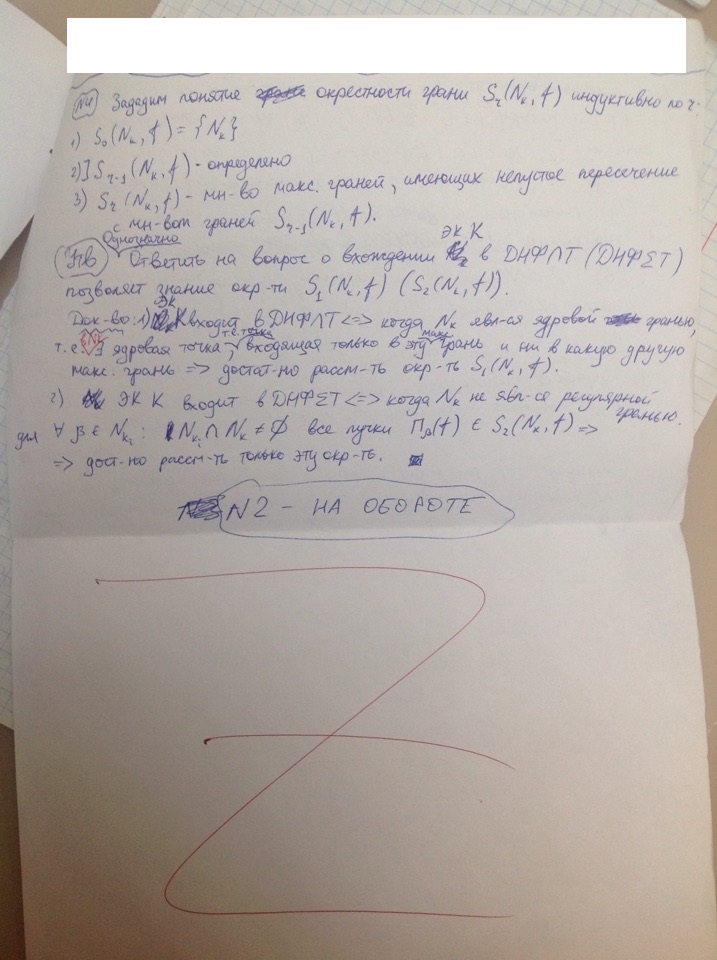 №4 Зададим понятие окрестности грани S_r(N_K, f) индуктивно по r:
1) S_0(N_K, f) = {N_K}
2) ] S_{r-1}(N_K, f) - определено
3) S_r(N_K, f) - мн-во макс. граней, имеющих непустое пересечение
с мн-вом граней S_{r-1}(N_K, f).
Утв Однозначно Ответить на вопрос о вхождении ЭК K в ДНФΛТ (ДНФΣТ)
позволяет знание окр-ти S_1(N_K, f) (S_2(N_K, f)).
Док-во: 1) ЭК K входит в ДНФΛТ <=> когда N_K явл-ся ядровой гранью,
т.е. ∃ ядровая точка, т.е. точка входящая только в эту макс. грань и ни в какую другую
макс. грань => достат-но рассм-ть окр-ть S_1(N_K, f).
2) ЭК K входит в ДНФΣТ <=> когда N_K не явл-ся регулярной гранью.
для ∀ β ∈ N_{K_i} : N_{K_i} ∩ N_K ≠ ∅ все пучки Π_β(f) ∈ S_2(N_K, f) =>
=> дост-но рассм-ть только эту окр-ть.
N2 - НА ОБОРОТЕ